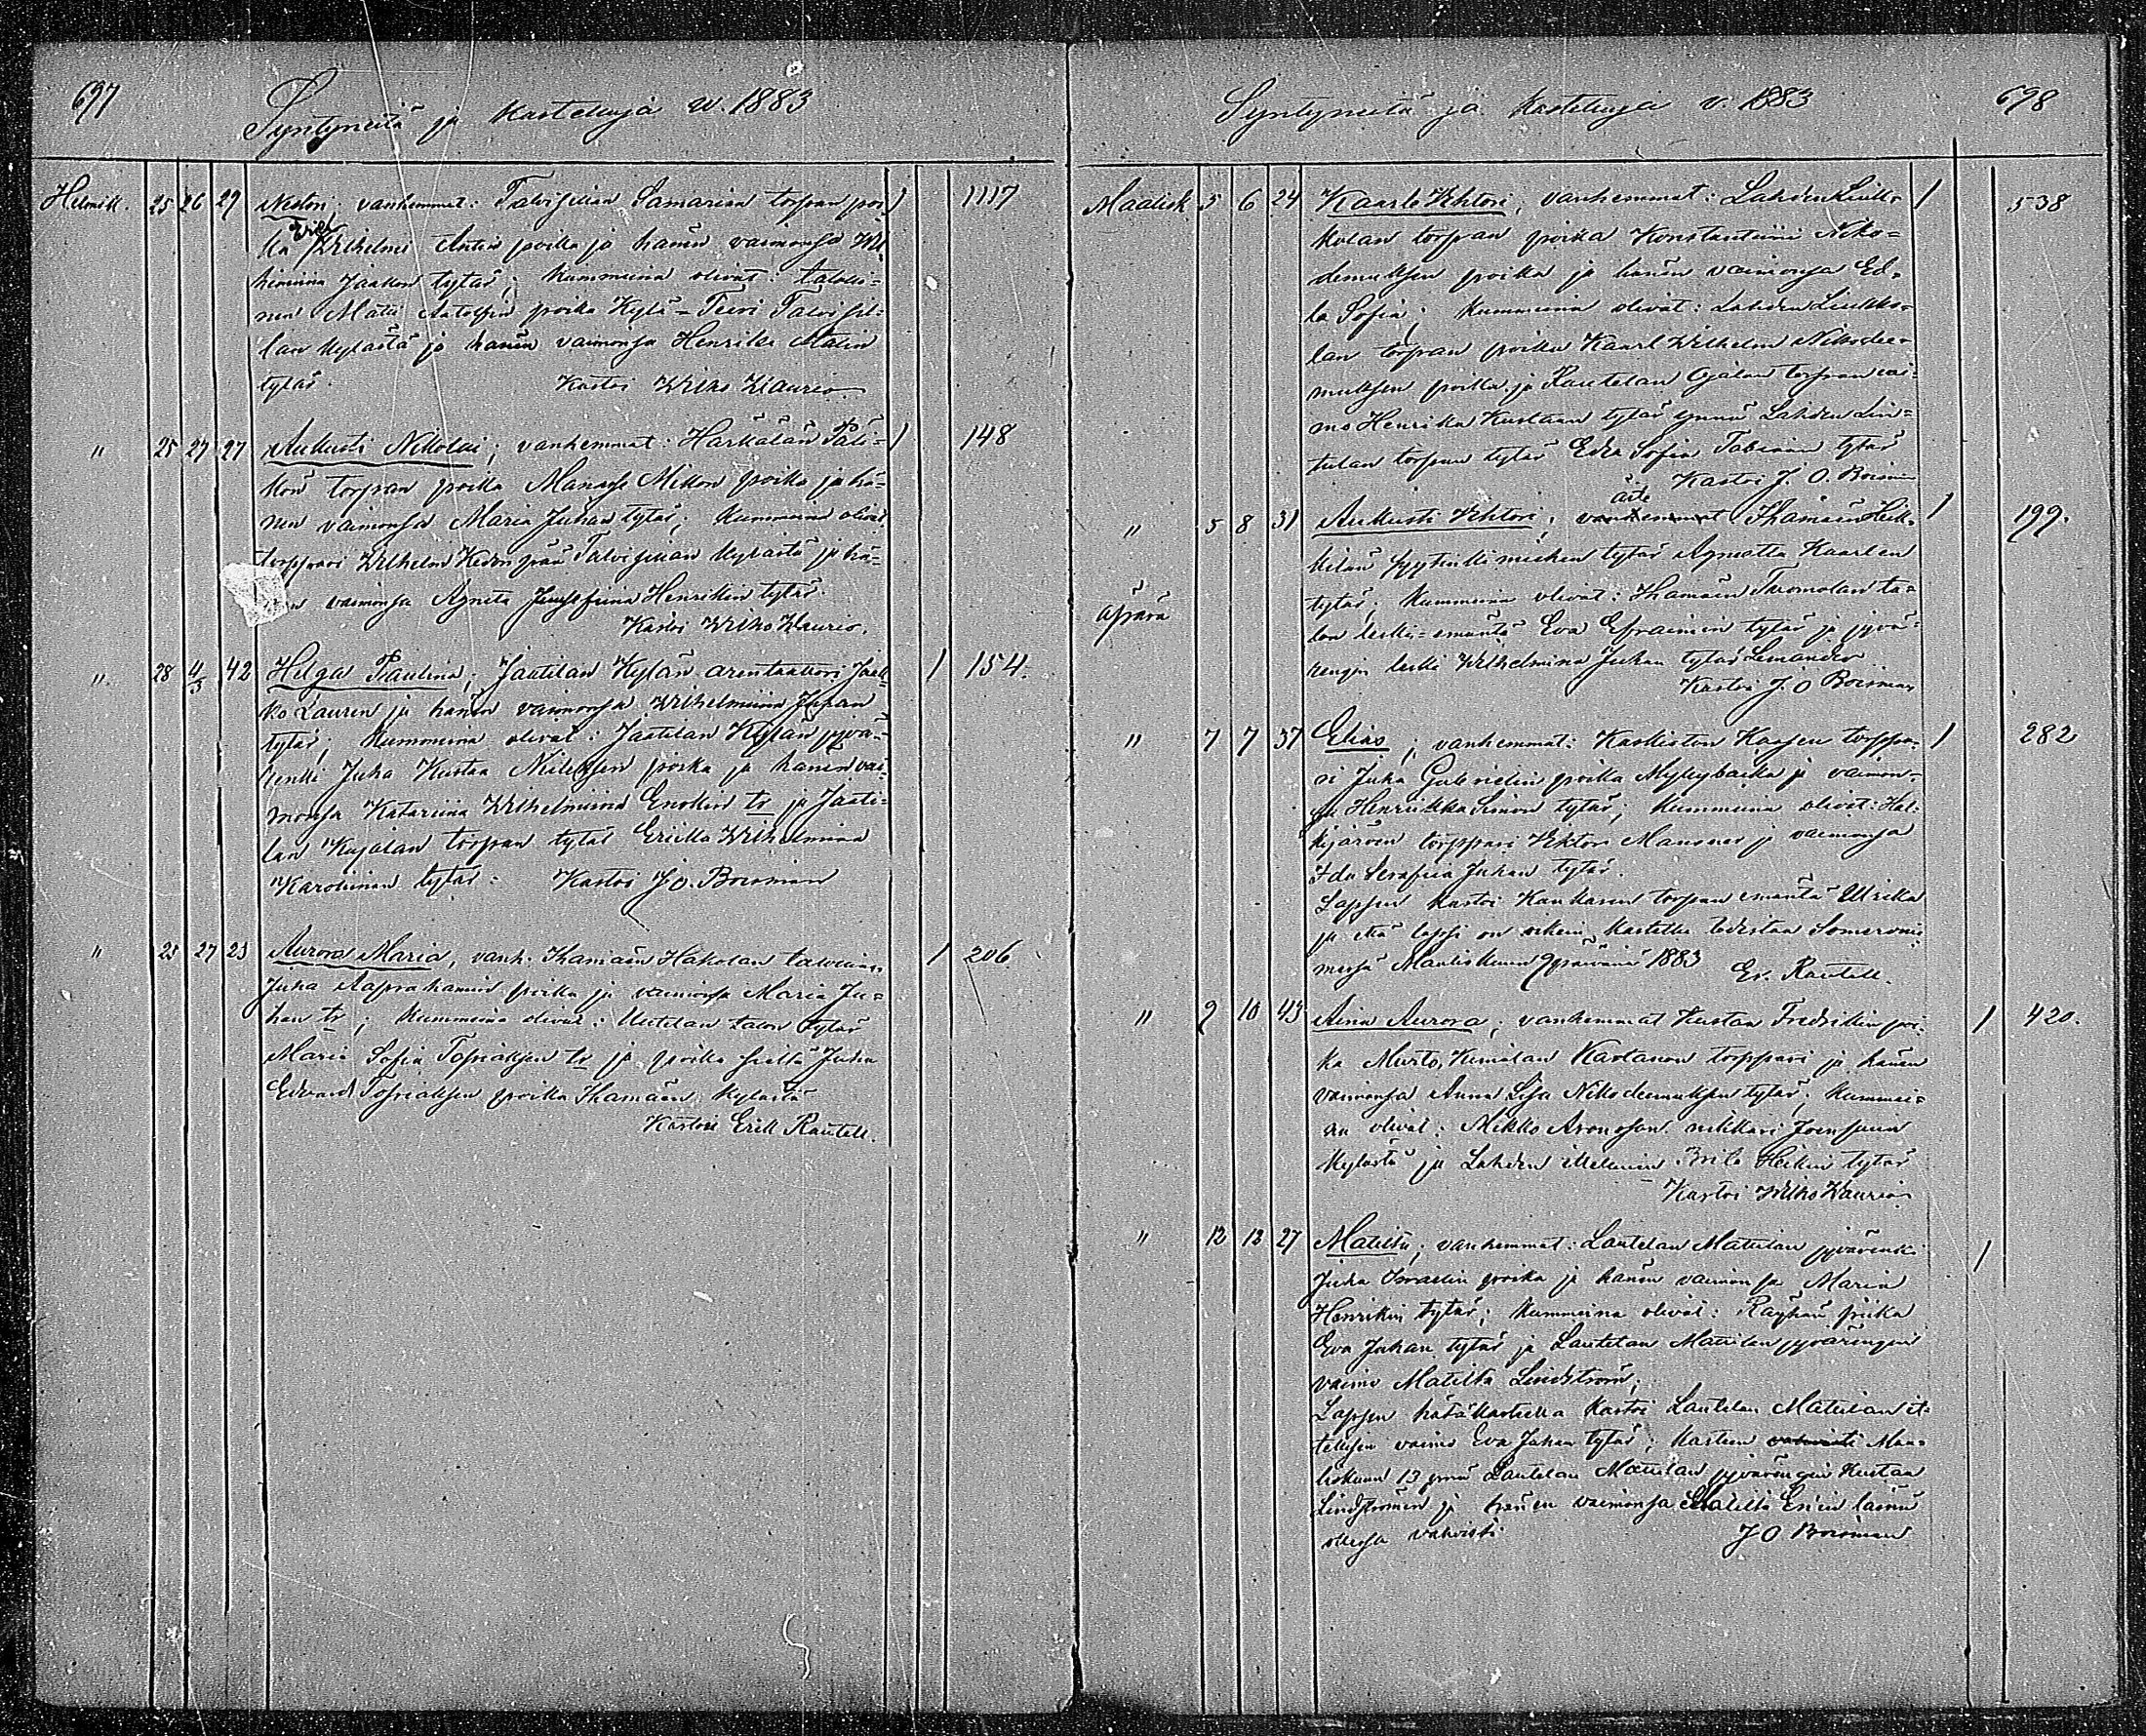 697
Syntyneitä ja kastetuja w. 1883
Helmik. 25 26 29 Nestori; vanhemmat: Talvisillan Samarian torpan poi- 1 1117
ka Erik Wilhelmi Antin poika ja hänen vaimonsa Wil
himiina Jaakon tytär; kummeina olivat: talolli-
nen Matti Antolfin poika Kylä-Teeri Talvisil-
lan kylästä ja hänen vaimonsa Henrika Matin
tytär. Kastoi Wilho Klaurio.
" 25 27 27 Aukusti Nikolai; vanhemmat: Härkälän Pali- 1 148
kon torpan poika Manasse Mikon poika ja hä-
nen vaimonsa Maria Juhan tytär; kummeina olivat
torppari Wilhelm Kedonpää Talvisillan kylästä ja hä-
n vaimonsa Agneta Josefiina Henrikin tytär.
Kastoi Wilho Klaurio.
" 28 4/3 42 Helga Paulina; Jaatilan Kylän arentaattori Jaak- 1 154.
ko Lauren ja hänen vaimonsa Wilhelmiina Juhan
tytär; kummeina olivat: Jaatilan Kylän pyvä-
renki Juha Kustaa Mileksen poika ja hänen vai-
monsa Katariina Wilhelmiina Enokin tr ja Jaati-
lan Kujalan torpan tytär Ericka Wilhelmina
Karoliinan tytär: Kastoi J. O. Boisman
" 25 27 23 Aurora Maria, vanh. Ihamäen Hakolan talollinen 1 206
Juha Aaprahamin poika ja vaimonsa Maria Ju-
han tr; kummeina olivat: Uutelan talon tytär
Maria Sofia Tofriaksen tr ja poika sieltä Juha
Edvard Tofriaksen poika Ihamäen kylästä
Kastoi Erik Rautell.
Syntyneitä ja kastetuja v. 1883
698
Maalisk 5 6 24 Kaarlo Wihtori; vanhemmat: Lahden Liuk- 1 538
kolan torpan poika Konstantiini Niko-
demuksen poika ja hänen vaimonsa Ed-
la Sofia; kummeina olivat: Lahden Liukko-
lan torpan poika Kaarl Wilhelm Nikodee-
muksen poika ja Rautelan Ojalan torpan vai-
mo Henrika Kustaan tytär synnä Lahden Lin-
tulan torpan tytär Edla Sofia Tabiaan tytär
Kastoi J. O. Boisman
" 5 8 31 Aukusti Wihtori; vanhemmat äite Ihamäen Heik- 1 199.
kilän spytinkimiehen tytär Agnetta Kaarlen
äpärä tytär; kummeina olivat: Ihamäen Tuomolan ta-
lon leski-emäntä Eva Efraimin tytär ja pyvä-
rengin leski Wilhelmina Juhan tytär Lemander
Kastoi J. O Boisman
" 7 7 37 Elias; vanhemmat: Kaskiston Haasen torppa- 1 282
ri Juha Gabrielin poika Myllypakka ja vaimon-
sa Henriikka Simon tytär; kummeina olivat: Häl-
kijärven torppari Wihtori Mansner ja vaimonsa
Ida Serafiia Juhan tytär.
Lapsen kastoi Kankaren torpan emäntä Ulrika
ja että lapsi on oikein kastettu todistaa Somernie-
mesä Maaliskuun 9 päivänä 1883 Er. Rautell.
" 9 10 43 Aina Aurora; vanhemmat Kustaa Fredrikin poi- 1 420.
ka Murto, Kimalan Kartanon torppari ja hänen
vaimonsa Anna Lisa Nikodeemuksen tytär; kummei-
na olivat: Mikko Aronoson nikkari Joensuun
kylästä ja Lahden itellinen Brita Heikin tytär
Kastoi Wilho Klaurio
" 12 13 27 Matilta; vanhemmat: Lautelan Mattilan pyvärenk. 1
Juha Israelin poika ja hänen vaimonsa Maria
Henrikin tytär; kummeina olivat: Räyhän piika
Eva Juhan tytär ja Lautelan Mattilan pyvärengin
vaimo Matilta Lindström;
Lapsen hätäkasteella kastoi Lautelan Mattilan it-
tellisen vaimo Eva Juhan tytär; kasteen Maa-
liskuun 13 pnä Lautelan Mattilan pyvärengin Kustaa
Lindströmin ja hänen vaimonsa Matilta Eriin läsnä
olessa vahvisti J O Boisman